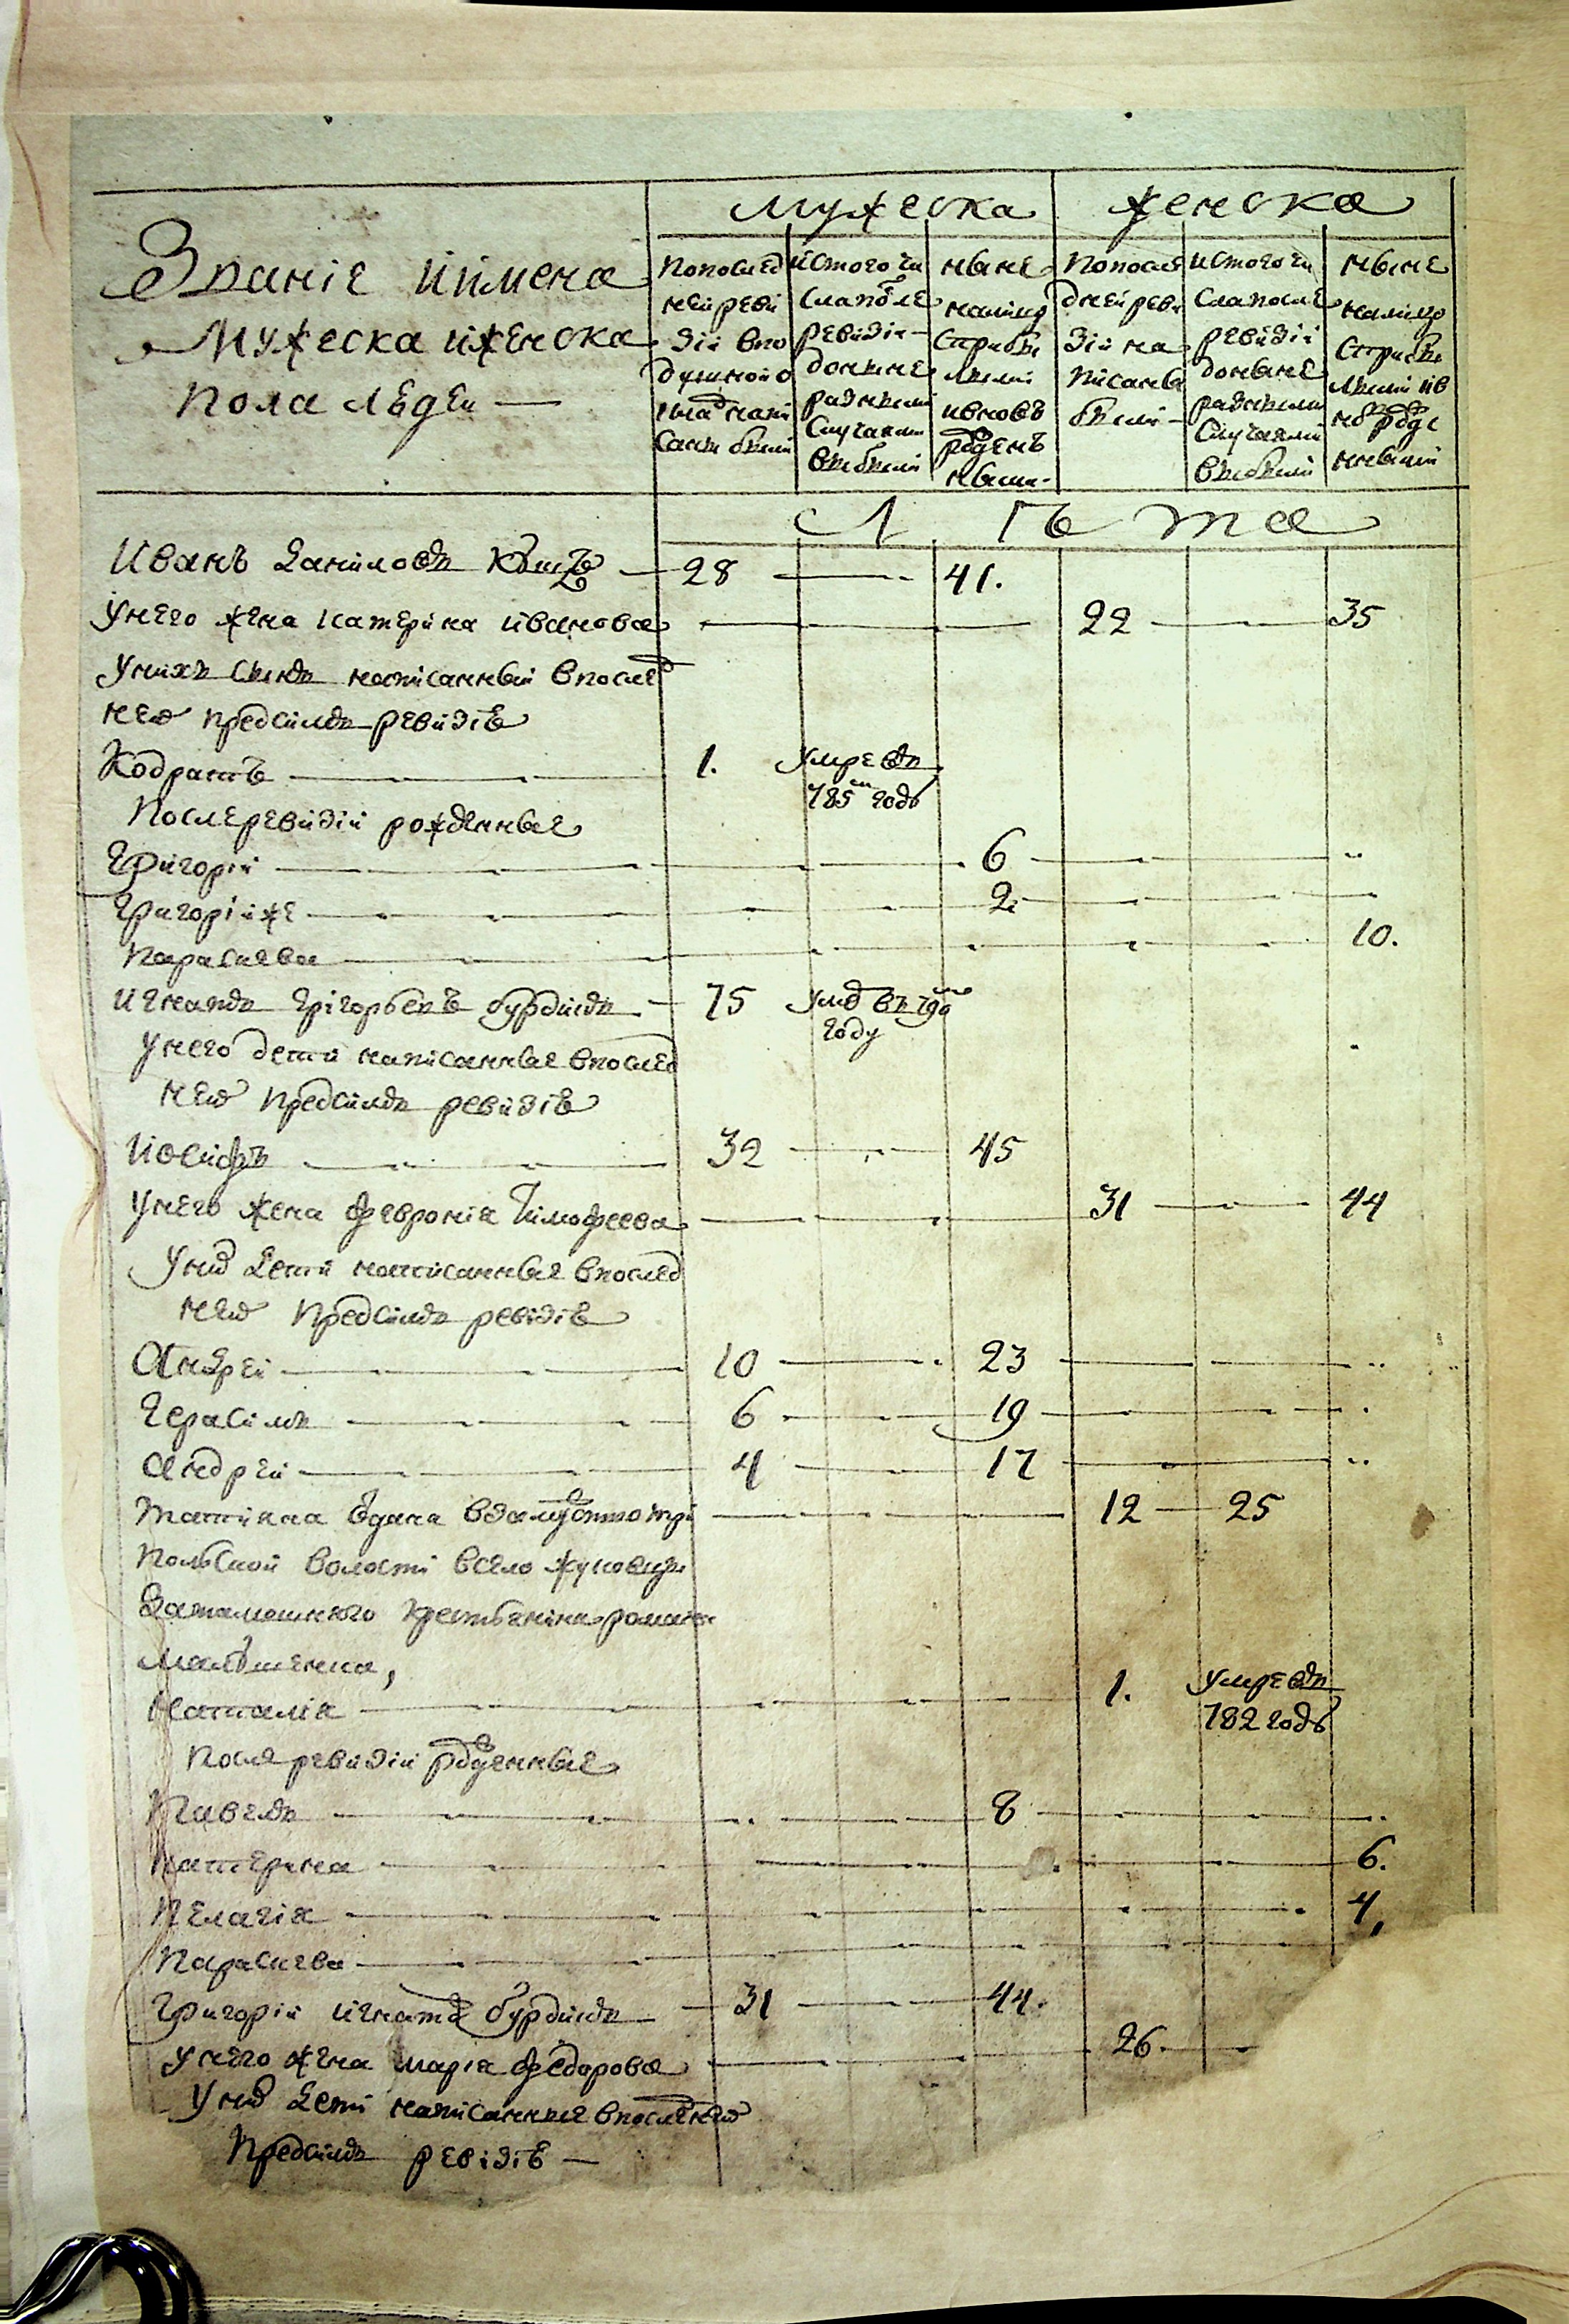 мужеска женска
Званіе иимена
Мужеска иженска
пола людеи —
попослед
неи реви
зіи впо
душной о
саны были
истого чи
сла после
ревизіи
до ныне
разными
случаями
выбыли
ныне
налицо
с прибы
лыми
ивновь
рожден
ными
попосле
дней реви
зіи на
писаны
были
истого чи
сла после
ревизіи
до ныне
разными
случаями
выбыли
ныне
налицо
с прибы
лыми ив
новь рожде
нными
Лѣта
Иванъ Даниловъ 28 41.
Унего жена катерина иванова 22 35
Унихъ сынъ написанный впослед
ней предсимъ ревизіѣ
Кодратъ 1. Умре въ
785м годѣ
После ревизіи рожденные
Григорій 6
Григорій же 2
Параскева 10.
Игнатъ Григорьевъ бурдинъ 75 Умре въ 790м
году
Унего дети написанные впослед
ней предсимъ ревизіѣ
Иосифъ 32 45
Унего жена Феврония Тимофеева 31 44
Уних дети написанные впослед
ней предсимъ ревизіѣ
Андрей 10 23
Герасимъ 6 19
Андрей 4 17
Татияна вдана взамужство 12 25
польской волости всело жуковцы
затамошнего крестьянина романа
Наталія 1. Умре въ
782 годѣ
После ревизіи рожденные
Павелъ 8
Катерина 6.
Пелагія 4,
Параскева
Григорій игнатов бурдинъ 31 44.
Унего жена марія Федорова 26.
Уних дети написанные впоследней
предсимъ ревизіѣ —